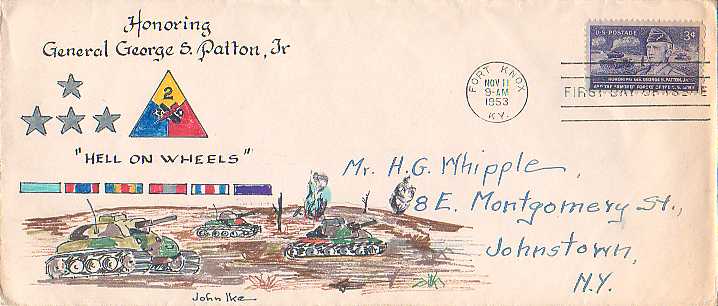 Honoring
General George S. Patton, Jr
2
"HELL ON WHEELS"
John Ike
FORT KNOX
NOV 11
9-AM
1953
KY.
U.S. POSTAGE 3¢
HONORING GEN. GEORGE S. PATTON, JR.
AND THE ARMORED FORCES OF THE U.S. ARMY
FIRST DAY OF ISSUE
Mr. H.G. Whipple,
8 E. Montgomery St.,
Johnstown,
N.Y.